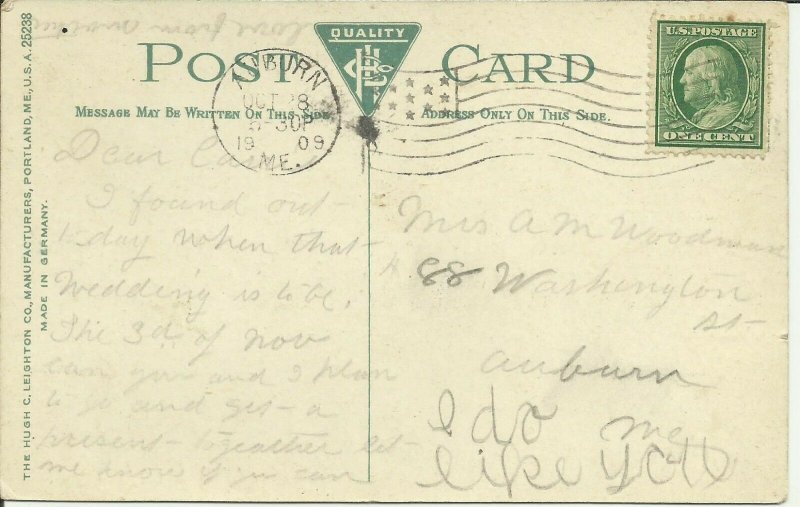 THE HUGH C. LEIGHTON CO., MANUFACTURERS, PORTLAND, ME., U.S.A. 25238
MADE IN GERMANY.
love from
POST CARD
QUALITY
MESSAGE MAY BE WRITTEN ON THIS SIDE
ADDRESS ONLY ON THIS SIDE.
AUBURN
OCT 28
30P
19 09
ME.
U.S. POSTAGE
ONE CENT
Dear
I found out
today when that
Wedding is to be,
The 3d of Nov
can you and I plan
to go and get a
present together let
me know if you can
Mrs A M Woodman
88 Washington
St
auburn
I do me
like you